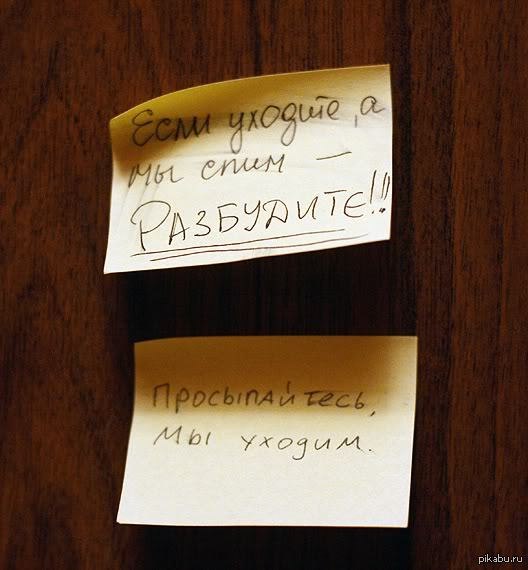 Если уходите, а
мы спим —
РАЗБУДИТЕ!!
Просыпайтесь,
мы уходим.
pikabu.ru